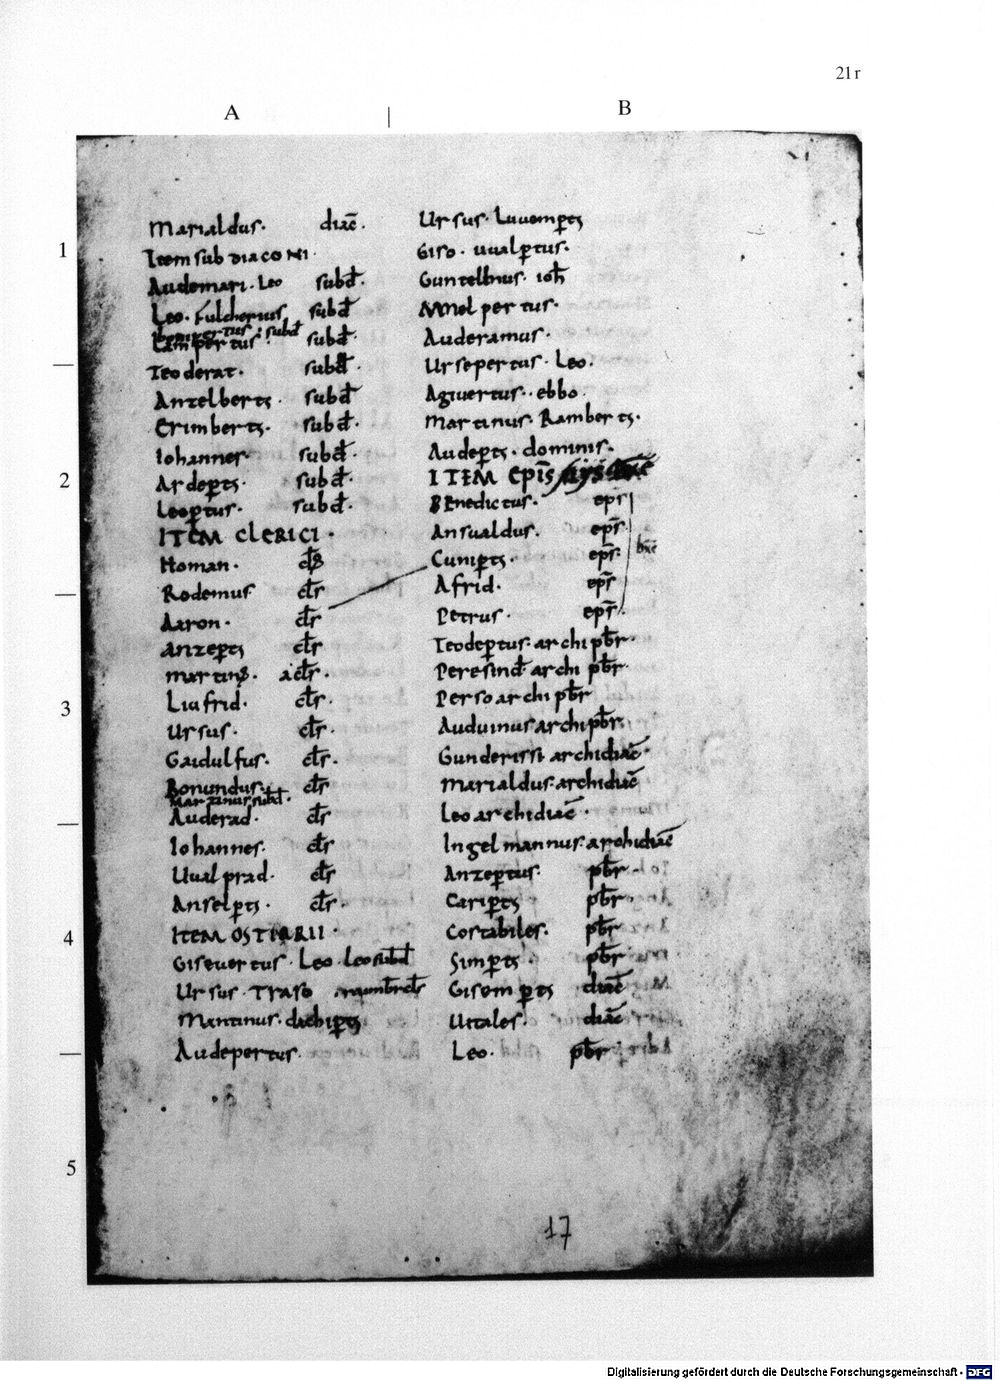 21r
A
B
1
2
3
4
5
Marialdus· diac̄·
Item sub diaconi·
Audemari·Leo subđ·
Leo·fulcherius subđ
subđ
Lampertus· subđ·
Teoderat· subđ
Antelbertꝰ· subđ
Erimbertꝰ· subđ·
Iohannes subđ·
Ardeꝑtꝰ· subđ·
Leoꝑtus· subđ·
ITEM CLERICI·
Homan· cl̄s
Rodemus cl̄r
Aaron· cl̄r
Anzeꝑtꝰ cl̄r
martinꝰ· acl̄r·
Liufrid· cl̄r·
Ursus· cl̄r·
Gaidulfus· cl̄r·
Bonundus· cl̄r
Martinus subđ·
Auderad· cl̄r
Iohannes· cl̄r
Uualprad· cl̄r
Anselꝑtꝰ· cl̄r·
ITEM OSTIARII·
Giseuertus·Leo·Leo subđ
Ursus·Traso cl̄r
Mantinus·
Audepertus·
Ursus·Luuomꝑtꝰ
Giso·uualꝑtus·
Guntelmus·ioh̄
Mnelpertus·
Auderamus·
Ursepertus·Leo·
Agiuertus··ebbo·
Martinus·Rambertꝰ·
Audeꝑtꝰ·dominis·
ITEM EPI̅S
Benedictus· ep̄s
Ansualdus· ep̄s·
Cuniꝑtꝰ· ep̄s·
Afrid· ep̄s
Petrus· ep̄s·
Teodeꝑtus·archipb̄r·
Peresind·archipb̄r
Perso archipb̄r
Auduinus archipb̄r·
Gunderissi archidiac̄·
Marialdus·archidiac̄
Leo archidiac̄·
Ingelmannus·archidiac̄
Anzeꝑtus· pb̄r
Cariꝑtꝰ pb̄r
Costabiles· pb̄r
Simꝑtꝰ· pb̄r
Gisomꝑtꝰ diac̄
Uitales· diac̄
Leo· pb̄r
17
Digitalisierung gefördert durch die Deutsche Forschungsgemeinschaft - DFG